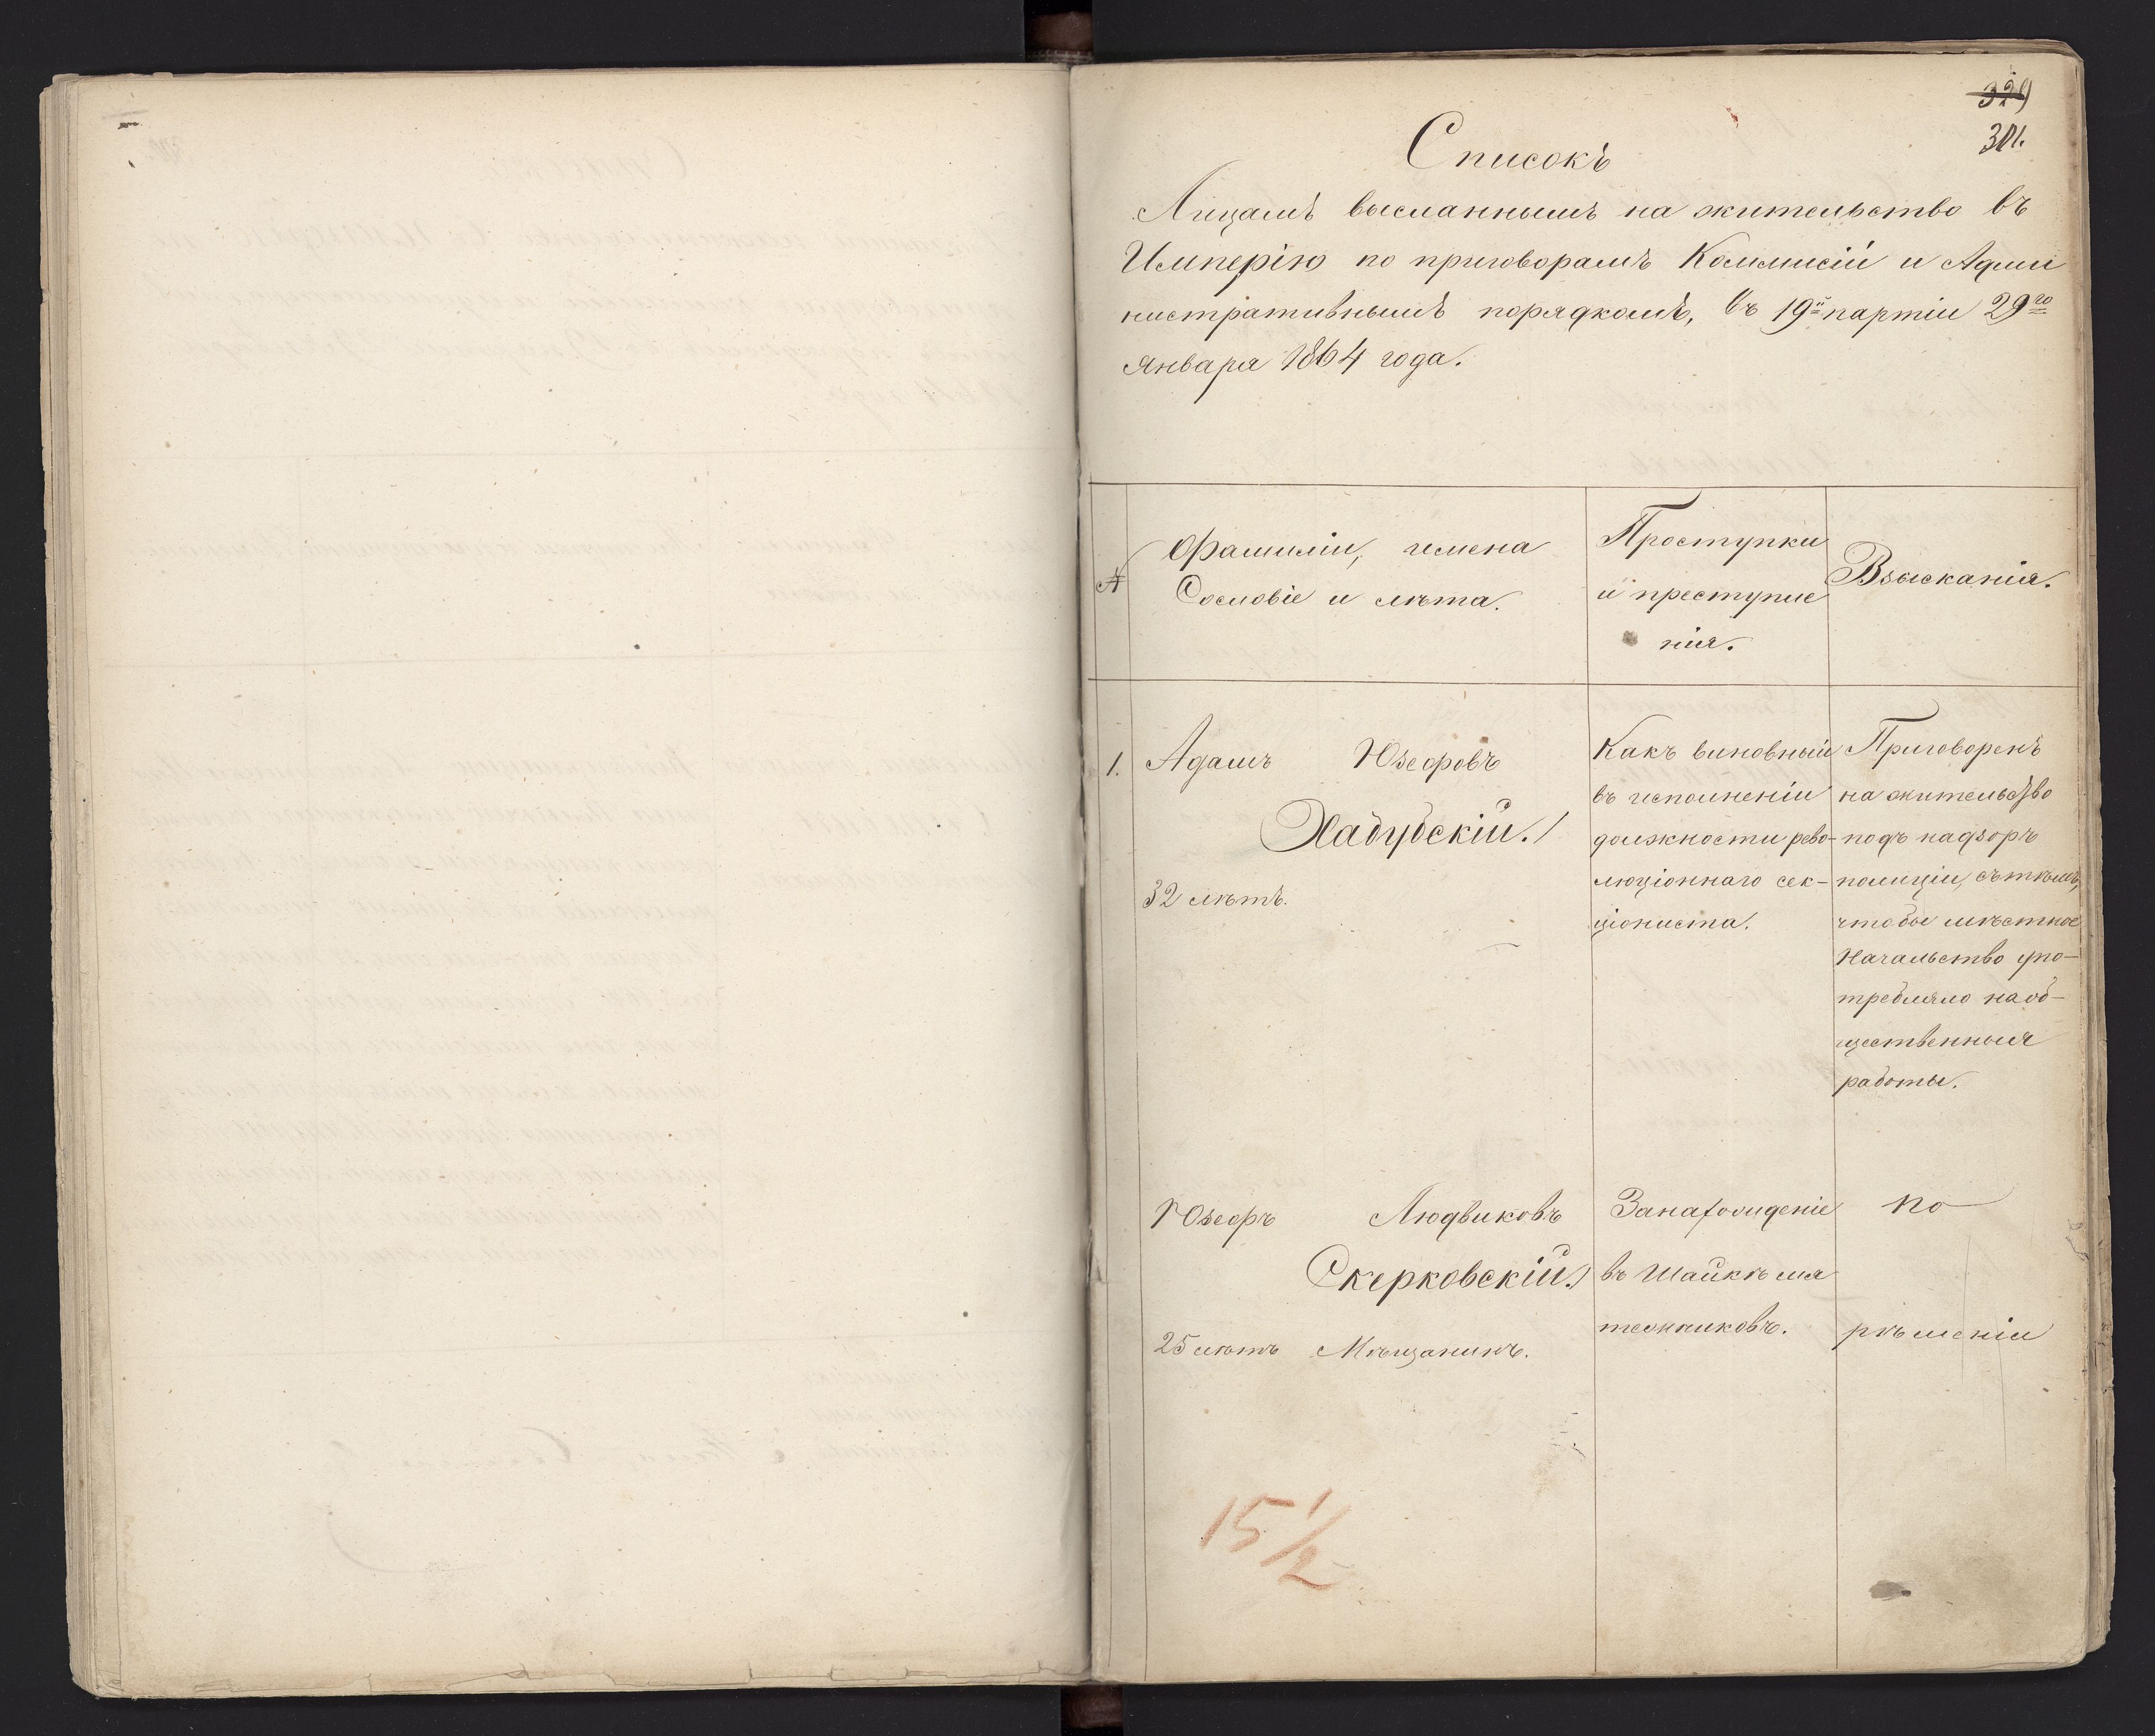 329
301.
Списокъ
Лицамъ высланнымъ на жительство въ
Имперію по приговорамъ Коммисій и Адми
нистративнымъ порядкомъ, въ 19й партіи 29го
Января 1864 года.
№
Фамиліи, имена
Сословіе и лѣта.
Проступки
и преступле
нія.
Взысканія.
1.
Адамъ Юзефовъ
Хадубскій.
32 лѣтъ.
Какъ виновный
въ исполненіи
должности рево-
люціоннаго сек-
ціониста.
Приговоренъ
на жительство
подъ надзоръ
полиціи, съ тѣмъ,
чтобы мѣстное
Начальство упо-
требляло на об-
щественныя
работы.
Юзефъ Людвиковъ
Скерковскій.
25 лѣтъ Мѣщанинъ.
За нахожденіе
въ шайкѣ мя
тежниковъ.
по
рѣшеніи
15 1/2